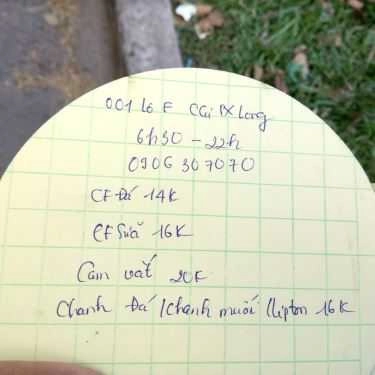 001 lô F CCi IX Long
6h30 - 22h
0906 307070
CF Đá 14K
CF Sữa 16K
Cam vắt 20K
Chanh Đá / Chanh muối / Lipton 16K